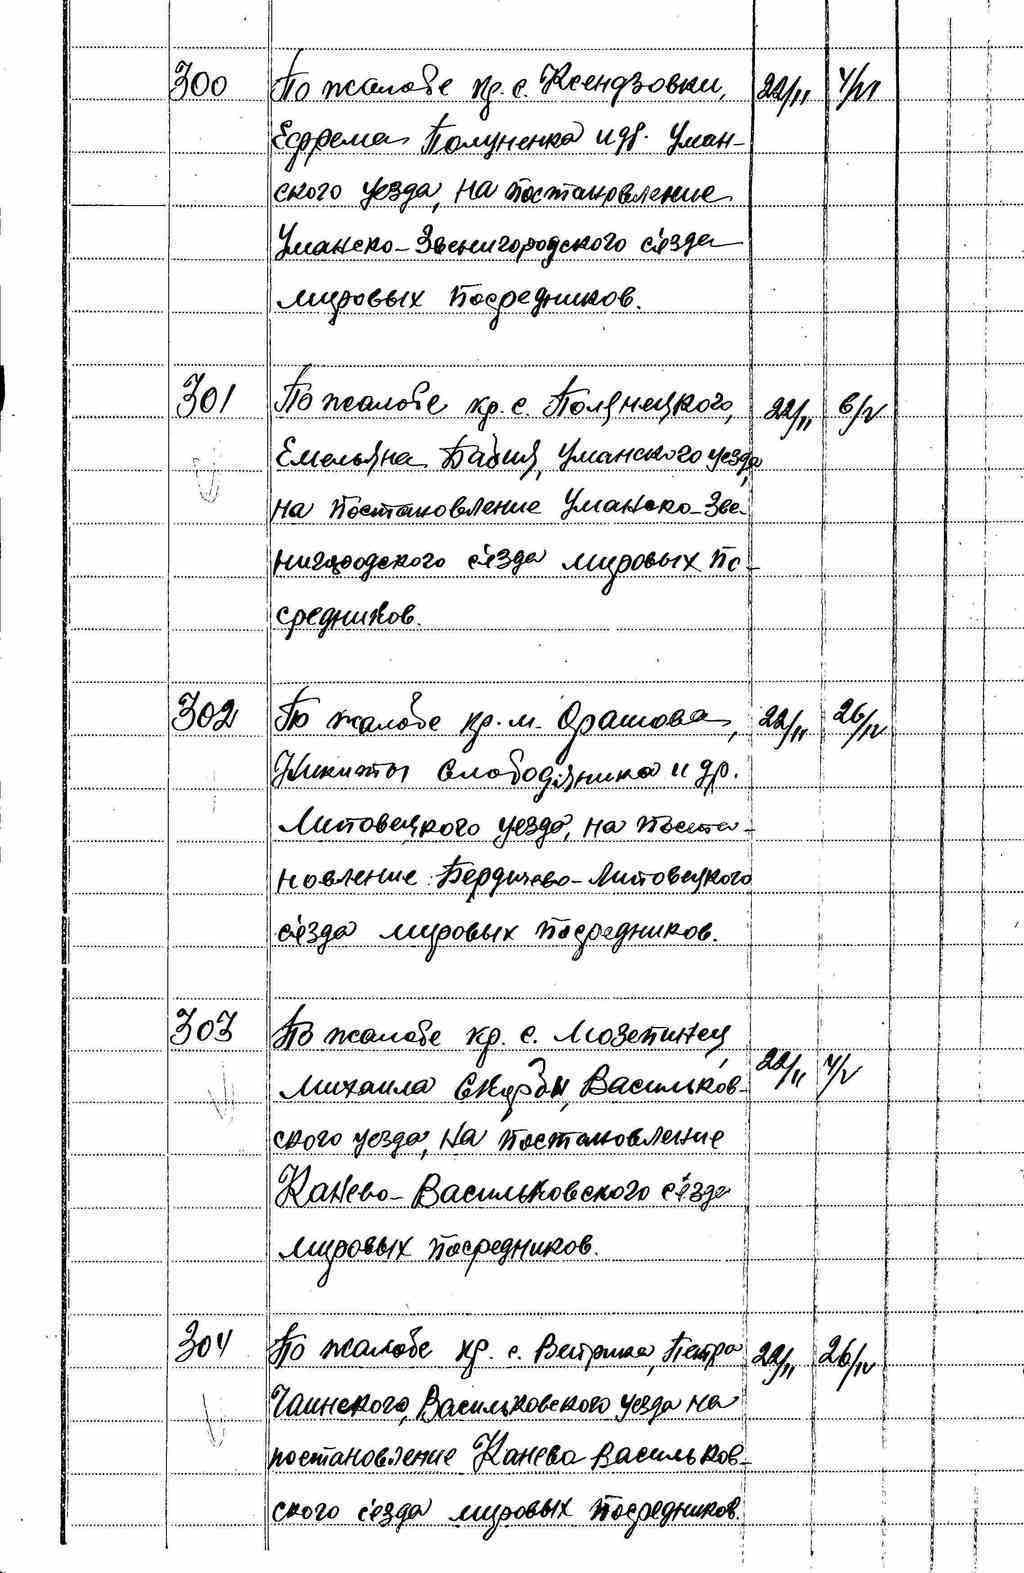 300 По жалобе кр. с. Ксендзовки, 22/II 4/VI
Ефрема Полуненка и др. Уман-
ского уезда, на постановление
Уманско-Звенигородского с'езда
мировых посредников.
301 По жалобе кр. с. Полянецкого, 22/II 6/V
Емельяна Бабия, Уманского уезда,
на постановление Уманско-Зве-
нигородского с'езда мировых по-
средников.
302 По жалобе кр. м. Оратова, 22/II 26/IV
Никиты Слободяника и др.
Липовецкого уезда, на поста-
новление Бердичево-Липовецкого
с'езда мировых посредников.
303 По жалобе кр. с. Мозепинец,
Михаила Скурбы, Васильков- 22/II 4/V
ского уезда, на постановление
Канево-Васильковского с'езда
мировых посредников.
304 По жалобе кр. с. Ветрика, Петра 22/II 26/IV
Чаинского, Васильковского уезда на
постановление Канева Васильков-
ского с'езда мировых посредников.